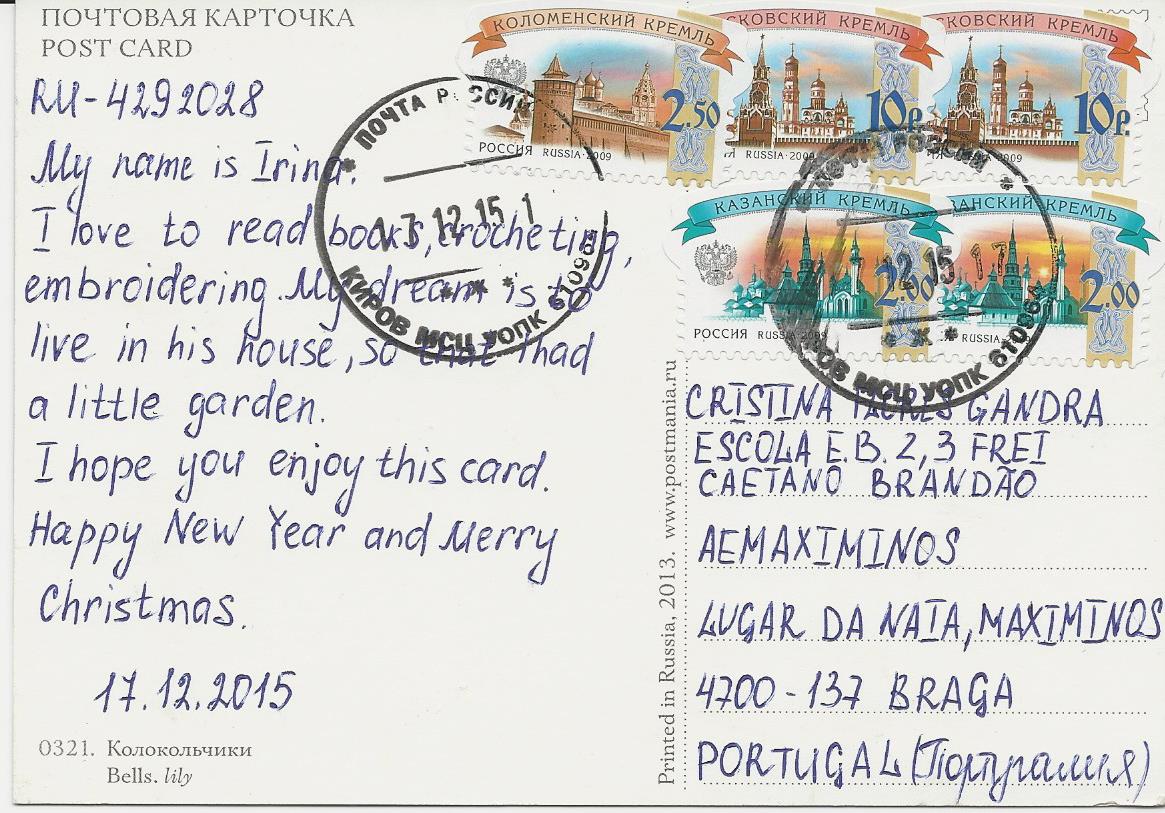 ПОЧТОВАЯ КАРТОЧКА
POST CARD
RU-4292028
My name is Irina.
I love to read books, crocheting,
embroidering. My dream is to
live in his house, so that I had
a little garden.
I hope you enjoy this card.
Happy New Year and Merry
Christmas.
17.12.2015
0321. Колокольчики
Bells. lily
КОЛОМЕНСКИЙ КРЕМЛЬ
2.50
РОССИЯ RUSSIA·2009
СКОВСКИЙ КРЕМЛЬ
10р.
RUSSIA·2009
СКОВСКИЙ КРЕМЛЬ
10р.
КАЗАНСКИЙ КРЕМЛЬ
2.00
РОССИЯ RUSSIA·2009
ЗАНСКИЙ КРЕМЛЬ
2.00
RUSSIA·2009
ПОЧТА РОССИИ
17.12.15 1
КИРОВ МСЦ УОПК 610960
ПОЧТА РОССИИ
12.15 17
КИРОВ МСЦ УОПК 610960
Printed in Russia, 2013. www.postmania.ru
CRISTINA GANDRA
ESCOLA E.B. 2,3 FREI
CAETANO BRANDÃO
AEMAXIMINOS
LUGAR DA NAIA, MAXIMINOS
4700-137 BRAGA
PORTUGAL (Португалия)